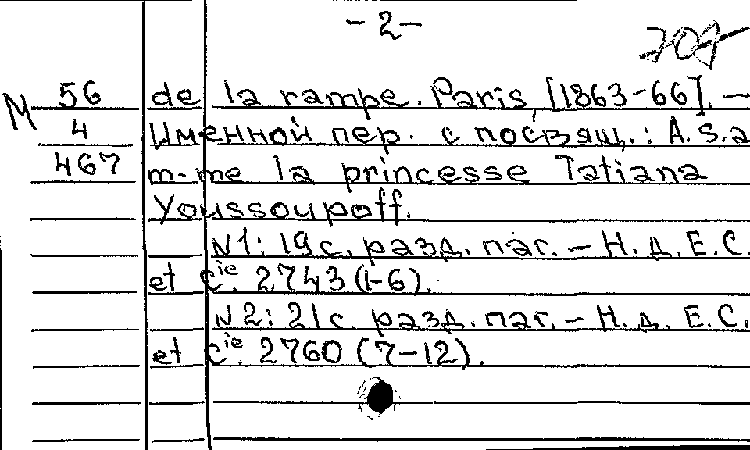 -2-
707
M 56 de la rampe. Paris, [1863-66]. —
4 Именной пер. с посвящ.: A.S.a
467 m-me la princesse Tatiana
Youssoupoff.
N1: 19 с. разд. паг. — Н. д. E.C.
et Cie. 2743 (1-6).
N2: 21 с. разд. паг. — Н. д. E.C.
et Cie. 2760 (7-12).